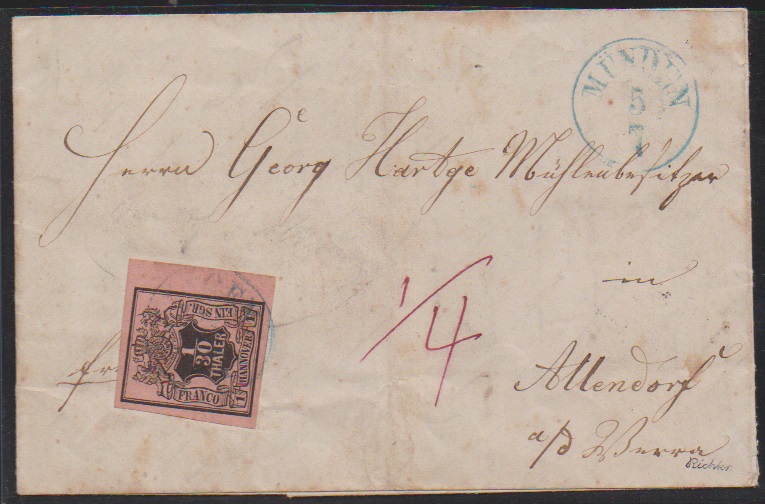 MÜNDEN
5
7
Herrn Georg Hartge Mühlenbesitzer
in
Allendorf
a/d Werra
1/4
fr
EIN SGR.
1
30
THALER
HANNOVER
FRANCO
1
1
Richter